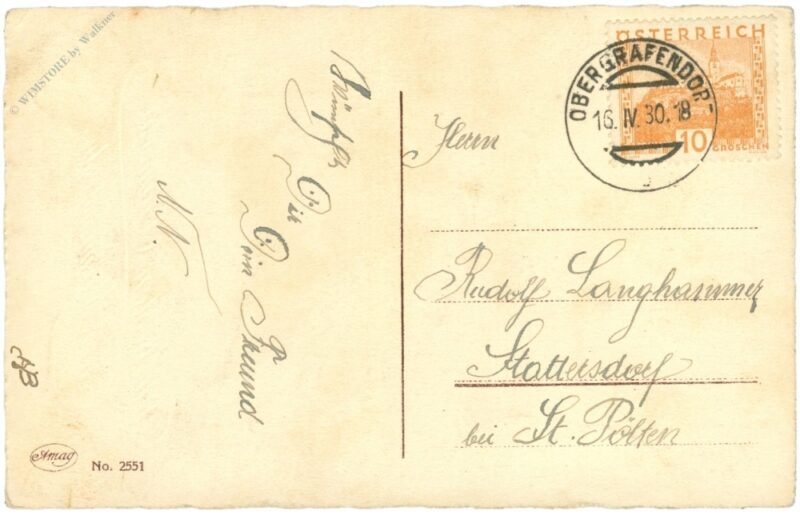 © WIMSTORE by Walkner
ÖSTERREICH
10
GROSCHEN
OBERGRAFENDORF
16. IV. 30. 18
Wünscht
Dir
Dein Freund
N. N.
Herrn
Rudolf Langhammer
Stattersdorf
bei St. Pölten
AB
Amag
No. 2551